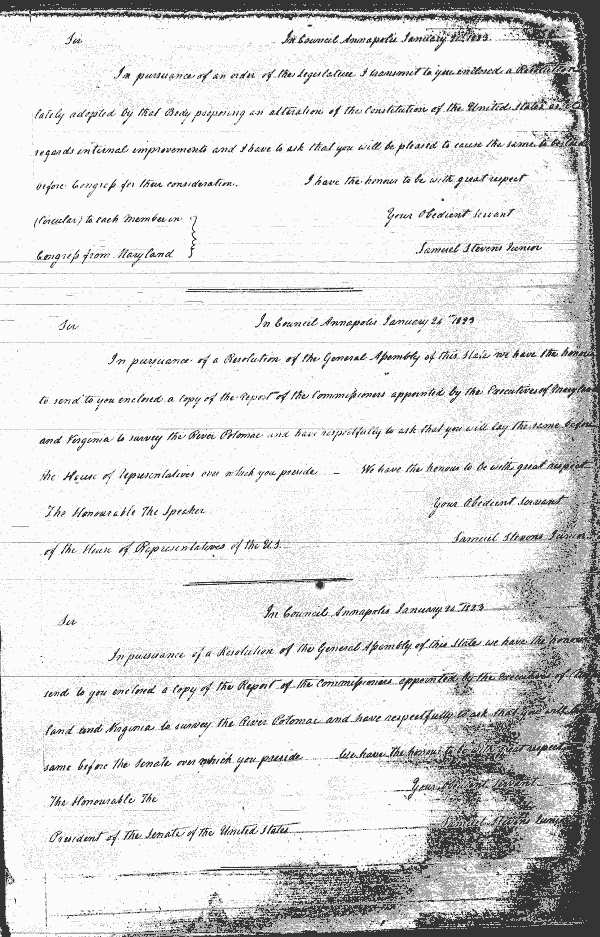 Sir In Council Annapolis January 1823
In pursuance of an order of the Legislature I transmit to you enclosed a Resolution
lately adopted by that Body proposing an alteration of the Constitution of the United States as
regards internal improvements and I have to ask that you will be pleased to cause the same to be laid
before Congress for their consideration. I have the honour to be with great respect
(Circular) to each Member in Your Obedient Servant
Congress from Maryland Samuel Stevens Junior
Sir In Council Annapolis January 24th 1823
In pursuance of a Resolution of the General Assembly of this State we have the honour
to send to you enclosed a copy of the report of the Commissioners appointed by the Executives of Maryland
and Virginia to survey the River Potomac and have respectfully to ask that you will lay the same before
the House of Representatives over which you preside – We have the honour to be with great respect
The Honourable The Speaker Your Obedient Servant
of the House of Representatives of the U.S. Samuel Stevens Junior
Sir In Council Annapolis January 24th 1823
In pursuance of a Resolution of the General Assembly of this State we have the honour
send to you enclosed a copy of the Report of the Commissioners appointed by the Executives of
land and Virginia to survey the River Potomac and have respectfully to ask that you will
same before the Senate over which you preside We have the honour to be with great respect
The Honourable The Your Obedient Servant
President of the Senate of the United States Samuel Stevens Junior